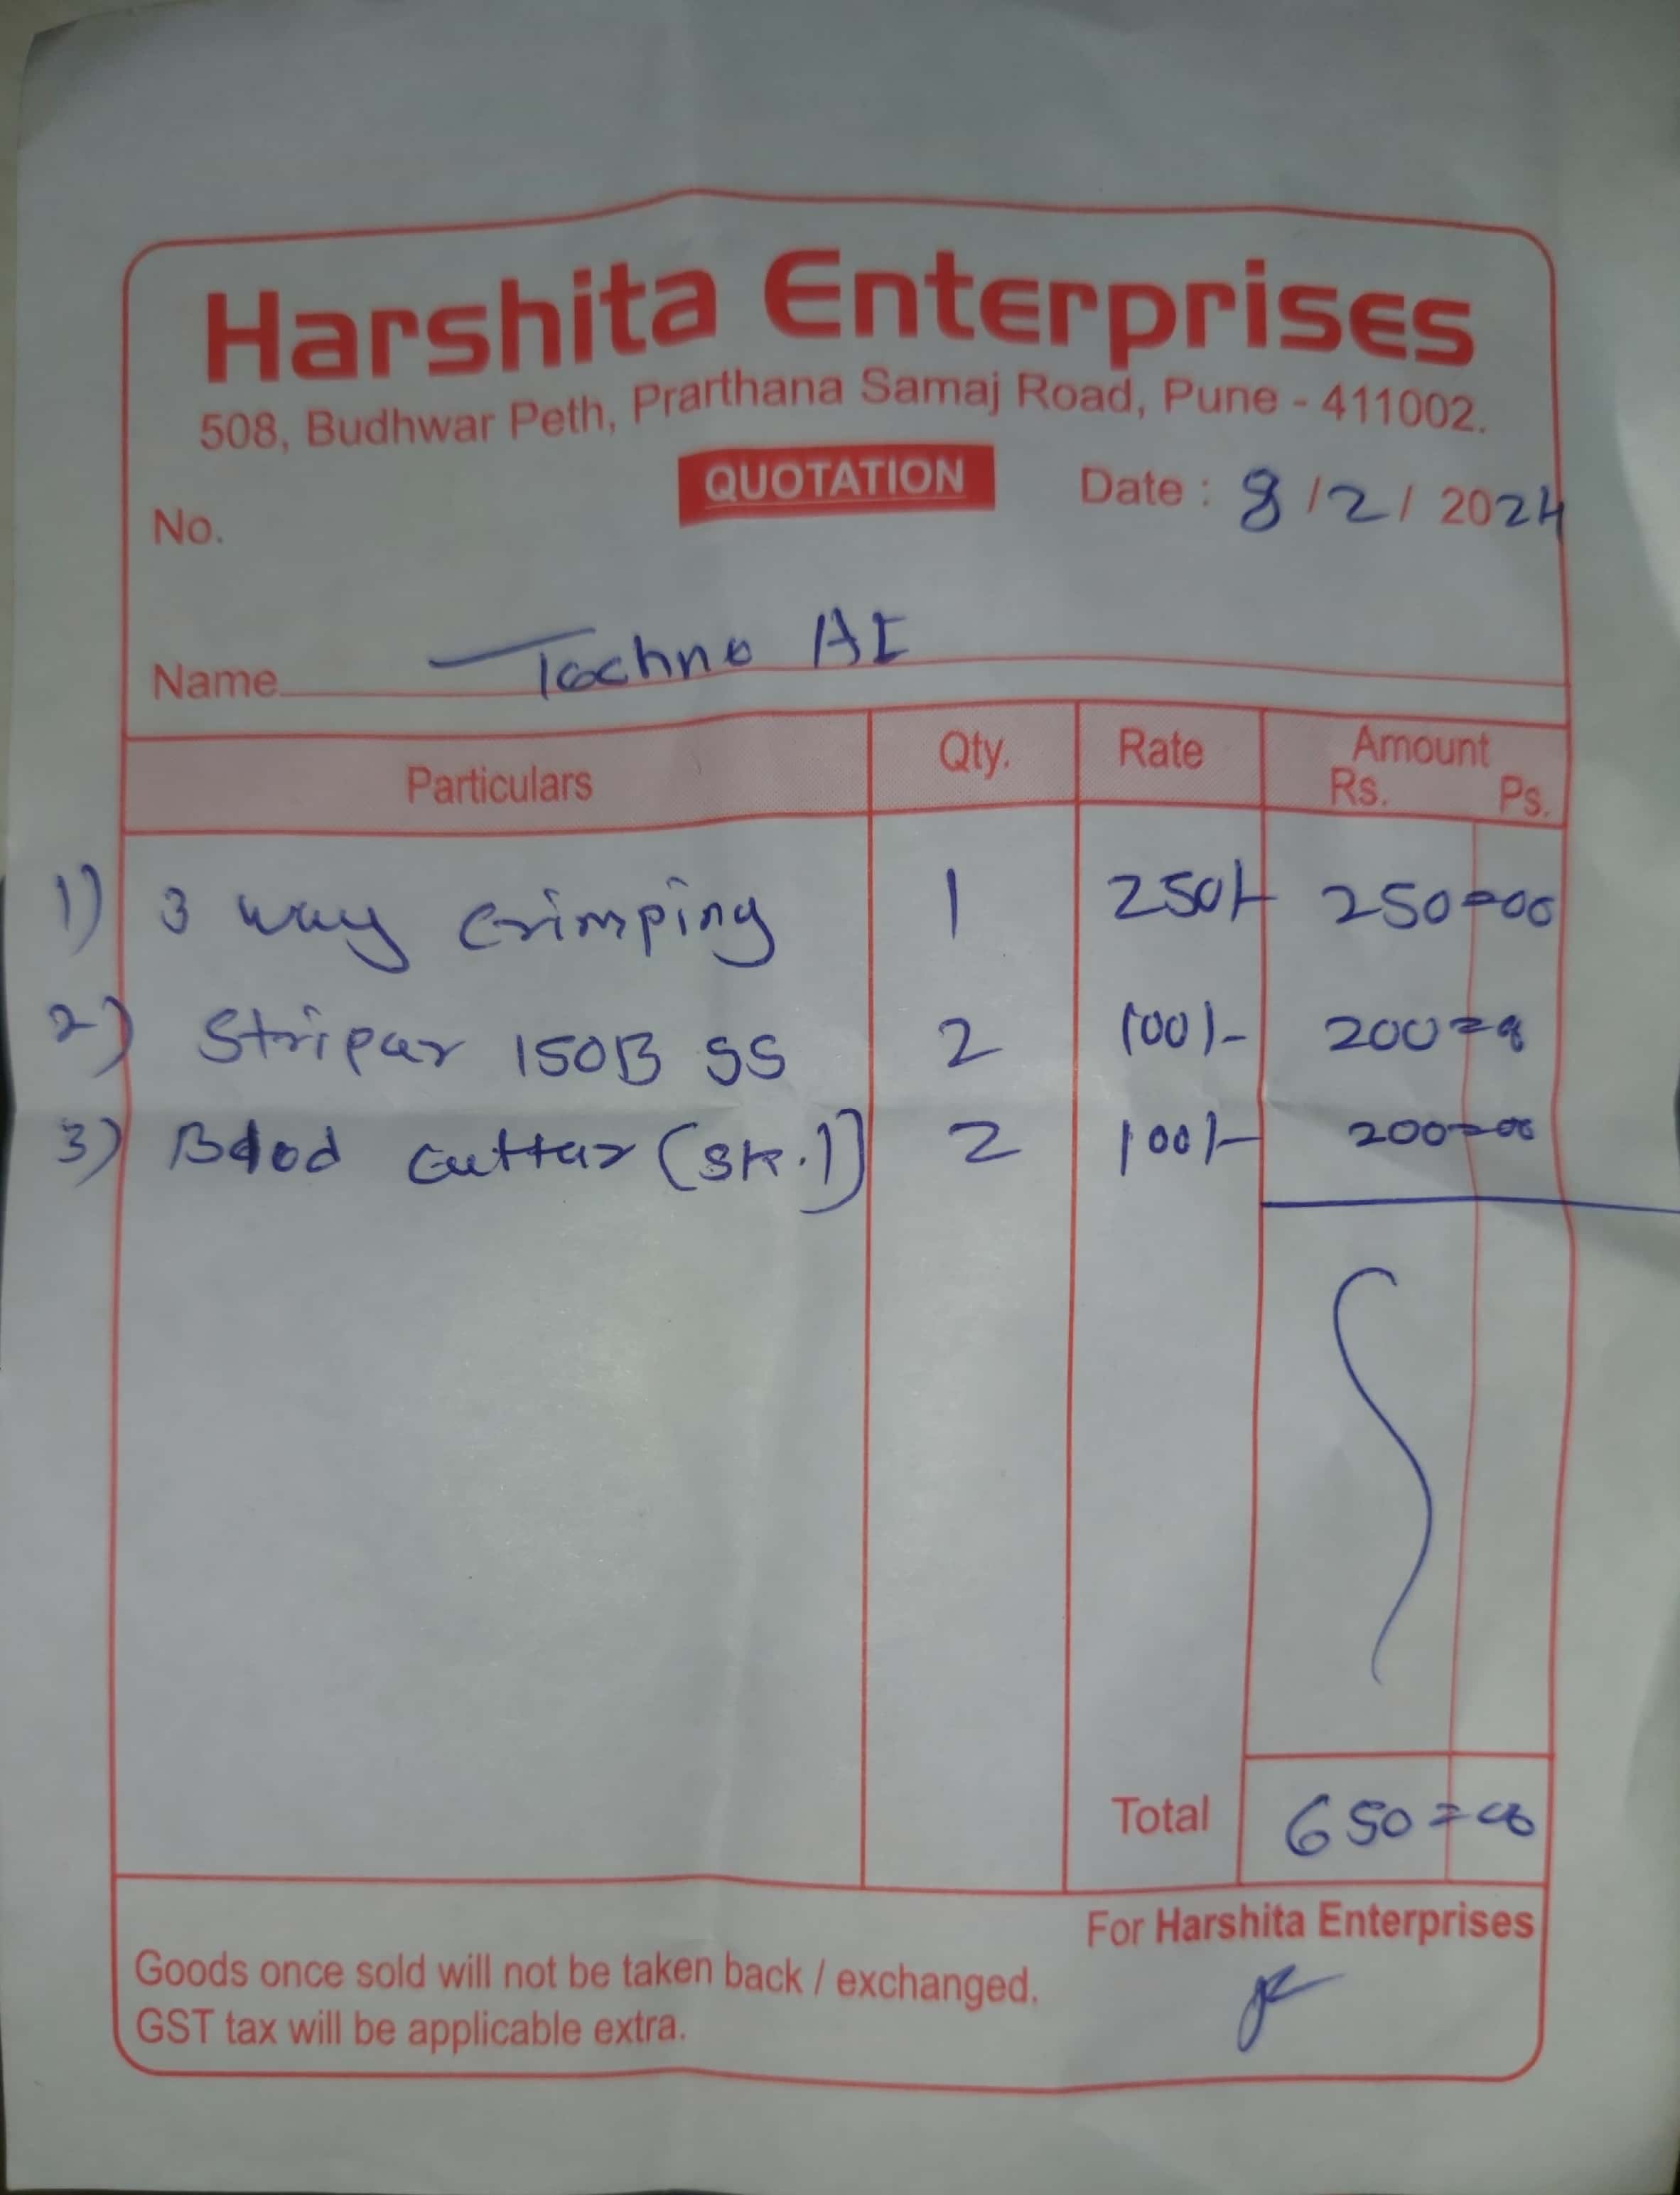 Harshita Enterprises
508, Budhwar Peth, Prarthana Samaj Road, Pune - 411002.
QUOTATION
No.
Date : 8/2/2024
Name Techno AI
Particulars Qty. Rate Amount
Rs. Ps.
1) 3 way Crimping 1 250/- 250=00
2) Stripar 150B SS 2 100/- 200=00
3) cuttar 2 100/- 200=00
Total 650=00
For Harshita Enterprises
Goods once sold will not be taken back / exchanged.
GST tax will be applicable extra.